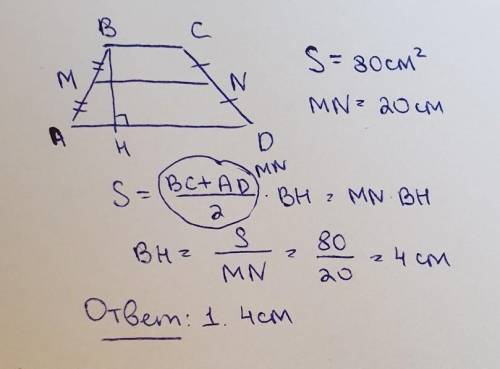 B C
S = 80 см²
M N
MN = 20 см
A H D
S = (BC + AD)/2 · BH = MN · BH
MN
BH = S/MN = 80/20 = 4 см
Ответ: 1. 4 см